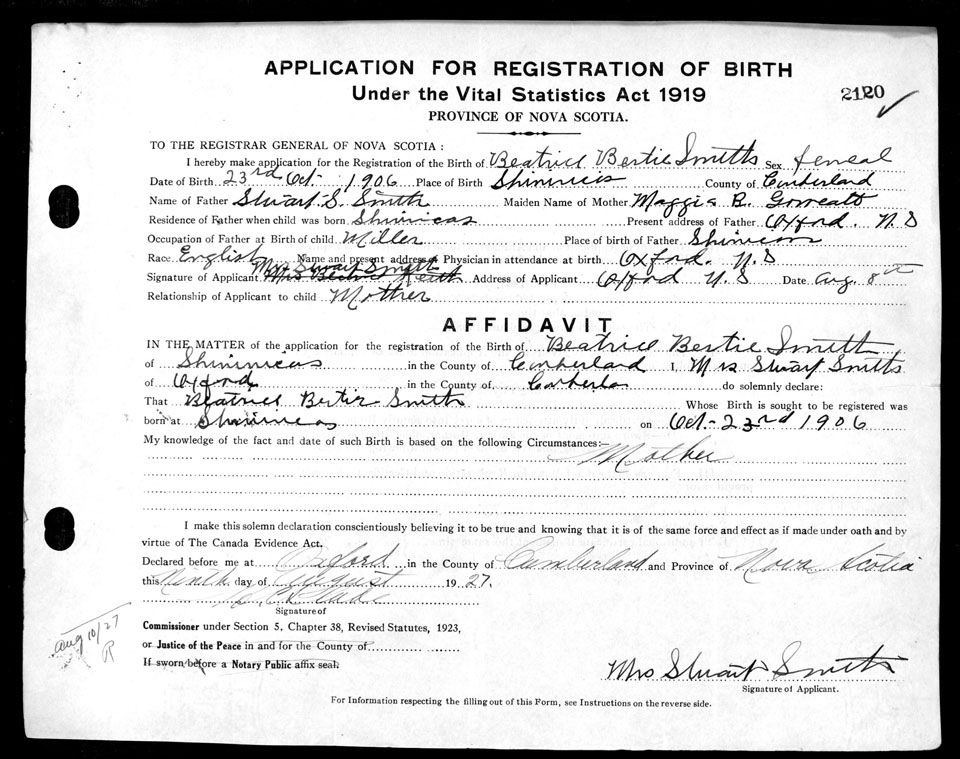 APPLICATION FOR REGISTRATION OF BIRTH
Under the Vital Statistics Act 1919
2120
PROVINCE OF NOVA SCOTIA.
TO THE REGISTRAR GENERAL OF NOVA SCOTIA :
I hereby make application for the Registration of the Birth of Beatrice Bertie Smith Sex femeal
Date of Birth 23rd Oct- 1906 Place of Birth Shinimicas County of Cumberland
Name of Father Stuart S. Smith Maiden Name of Mother Maggie B.
Residence of Father when child was born Shinicas Present address of Father Oxford N.S
Occupation of Father at Birth of child Miller Place of birth of Father Shinicas
Race English Name and present address of Physician in attendance at birth Oxford. N.S
Mrs Stuart Smith
Signature of Applicant Mrs Beatrice Keith Address of Applicant Oxford N.S Date Aug. 8th
Relationship of Applicant to child Mother
AFFIDAVIT
IN THE MATTER of the application for the registration of the Birth of Beatrice Bertie Smith
of Shinimicas in the County of Cumberland I, Mrs Stuart Smith
of Oxford in the County of, do solemnly declare:
That Beatrice Bertie Smith Whose Birth is sought to be registered was
born at Shinimicas on Oct- 23rd 1906
My knowledge of the fact and date of such Birth is based on the following Circumstances:—
Mother
I make this solemn declaration conscientiously believing it to be true and knowing that it is of the same force and effect as if made under oath and by
virtue of The Canada Evidence Act.
Declared before me at Oxford in the County of Cumberland and Province of Nova Scotia
this Ninth day of August 1927.
Signature of
Commissioner under Section 5, Chapter 38, Revised Statutes, 1923,
or Justice of the Peace in and for the County of
If sworn before a Notary Public affix seal.
Aug 10/27
R
Mrs Stuart Smith
Signature of Applicant.
For Information respecting the filling out of this Form, see Instructions on the reverse side.